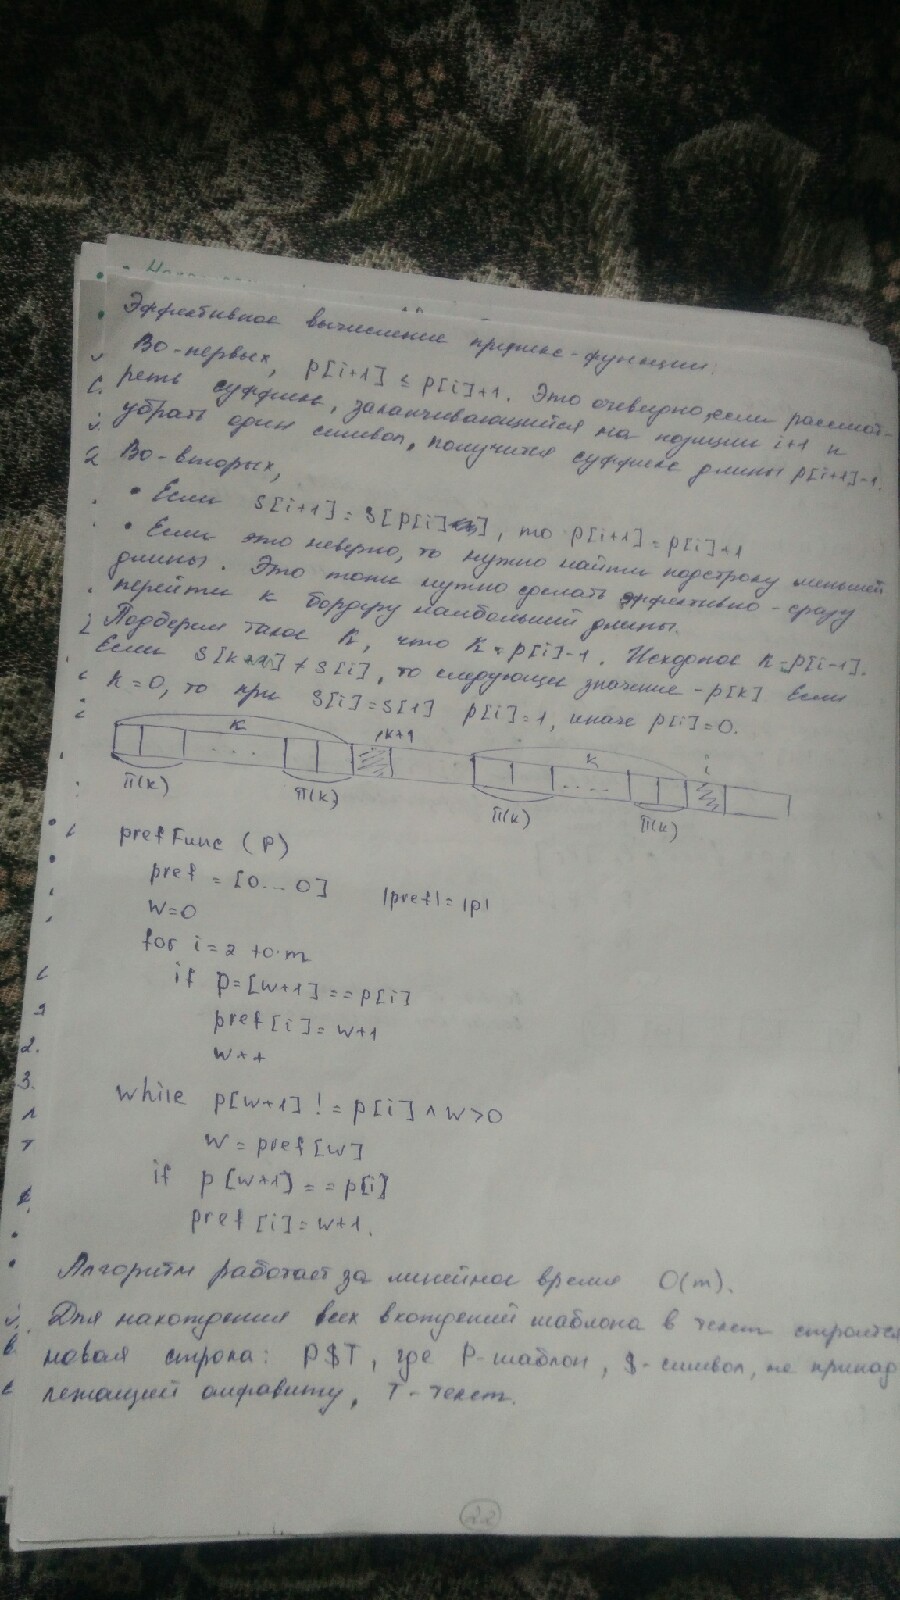 Эффективное вычисление префикс-функции:
Во-первых, p[i+1] ≤ p[i]+1. Это очевидно, если рассмот-
реть суффикс, заканчивающийся на позиции i+1 и
убрать один символ, получится суффикс длины p[i+1]-1.
Во-вторых,
• Если S[i+1] = S[p[i]], то p[i+1] = p[i]+1
• Если это неверно, то нужно найти подстроку меньшей
длины. Это тоже нужно сделать эффективно - сразу
перейти к бордеру наибольшей длины.
Подберем такое K, что K = p[i]-1. Исходное K=p[i-1].
Если S[k+1] ≠ S[i], то следующее значение - p[k] Если
K=0, то при S[i]=S[1] p[i]=1, иначе p[i]=0.
K K+1 K i
π(k) π(k) π(k) π(k)
prefFunc (p)
pref = [0...0] |pref| = |p|
W=0
for i=2 to m
if p=[w+1]==p[i]
pref[i]=w+1
w++
while p[w+1] != p[i] ∧ w>0
w=pref[w]
if p[w+1]==p[i]
pref[i]=w+1.
Алгоритм работает за линейное время O(m).
Для нахождения всех вхождений шаблона в текст строится
новая строка: P$T, где P-шаблон, $-символ, не принад
лежащий алфавиту, T-текст.
22